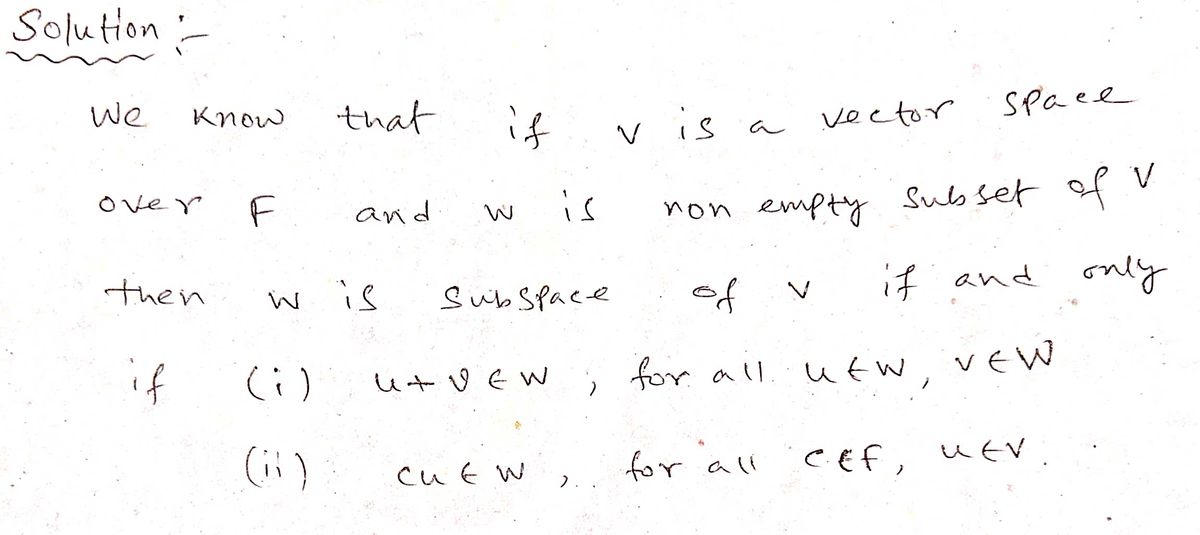 Solution :-
We know that if v is a vector space
over F and w is non empty subset of V
then w is subspace of v if and only
if (i) u+v ∈ W , for all u ∈ W, v ∈ W
(ii) cu ∈ W , for all c ∈ f, u ∈ V.